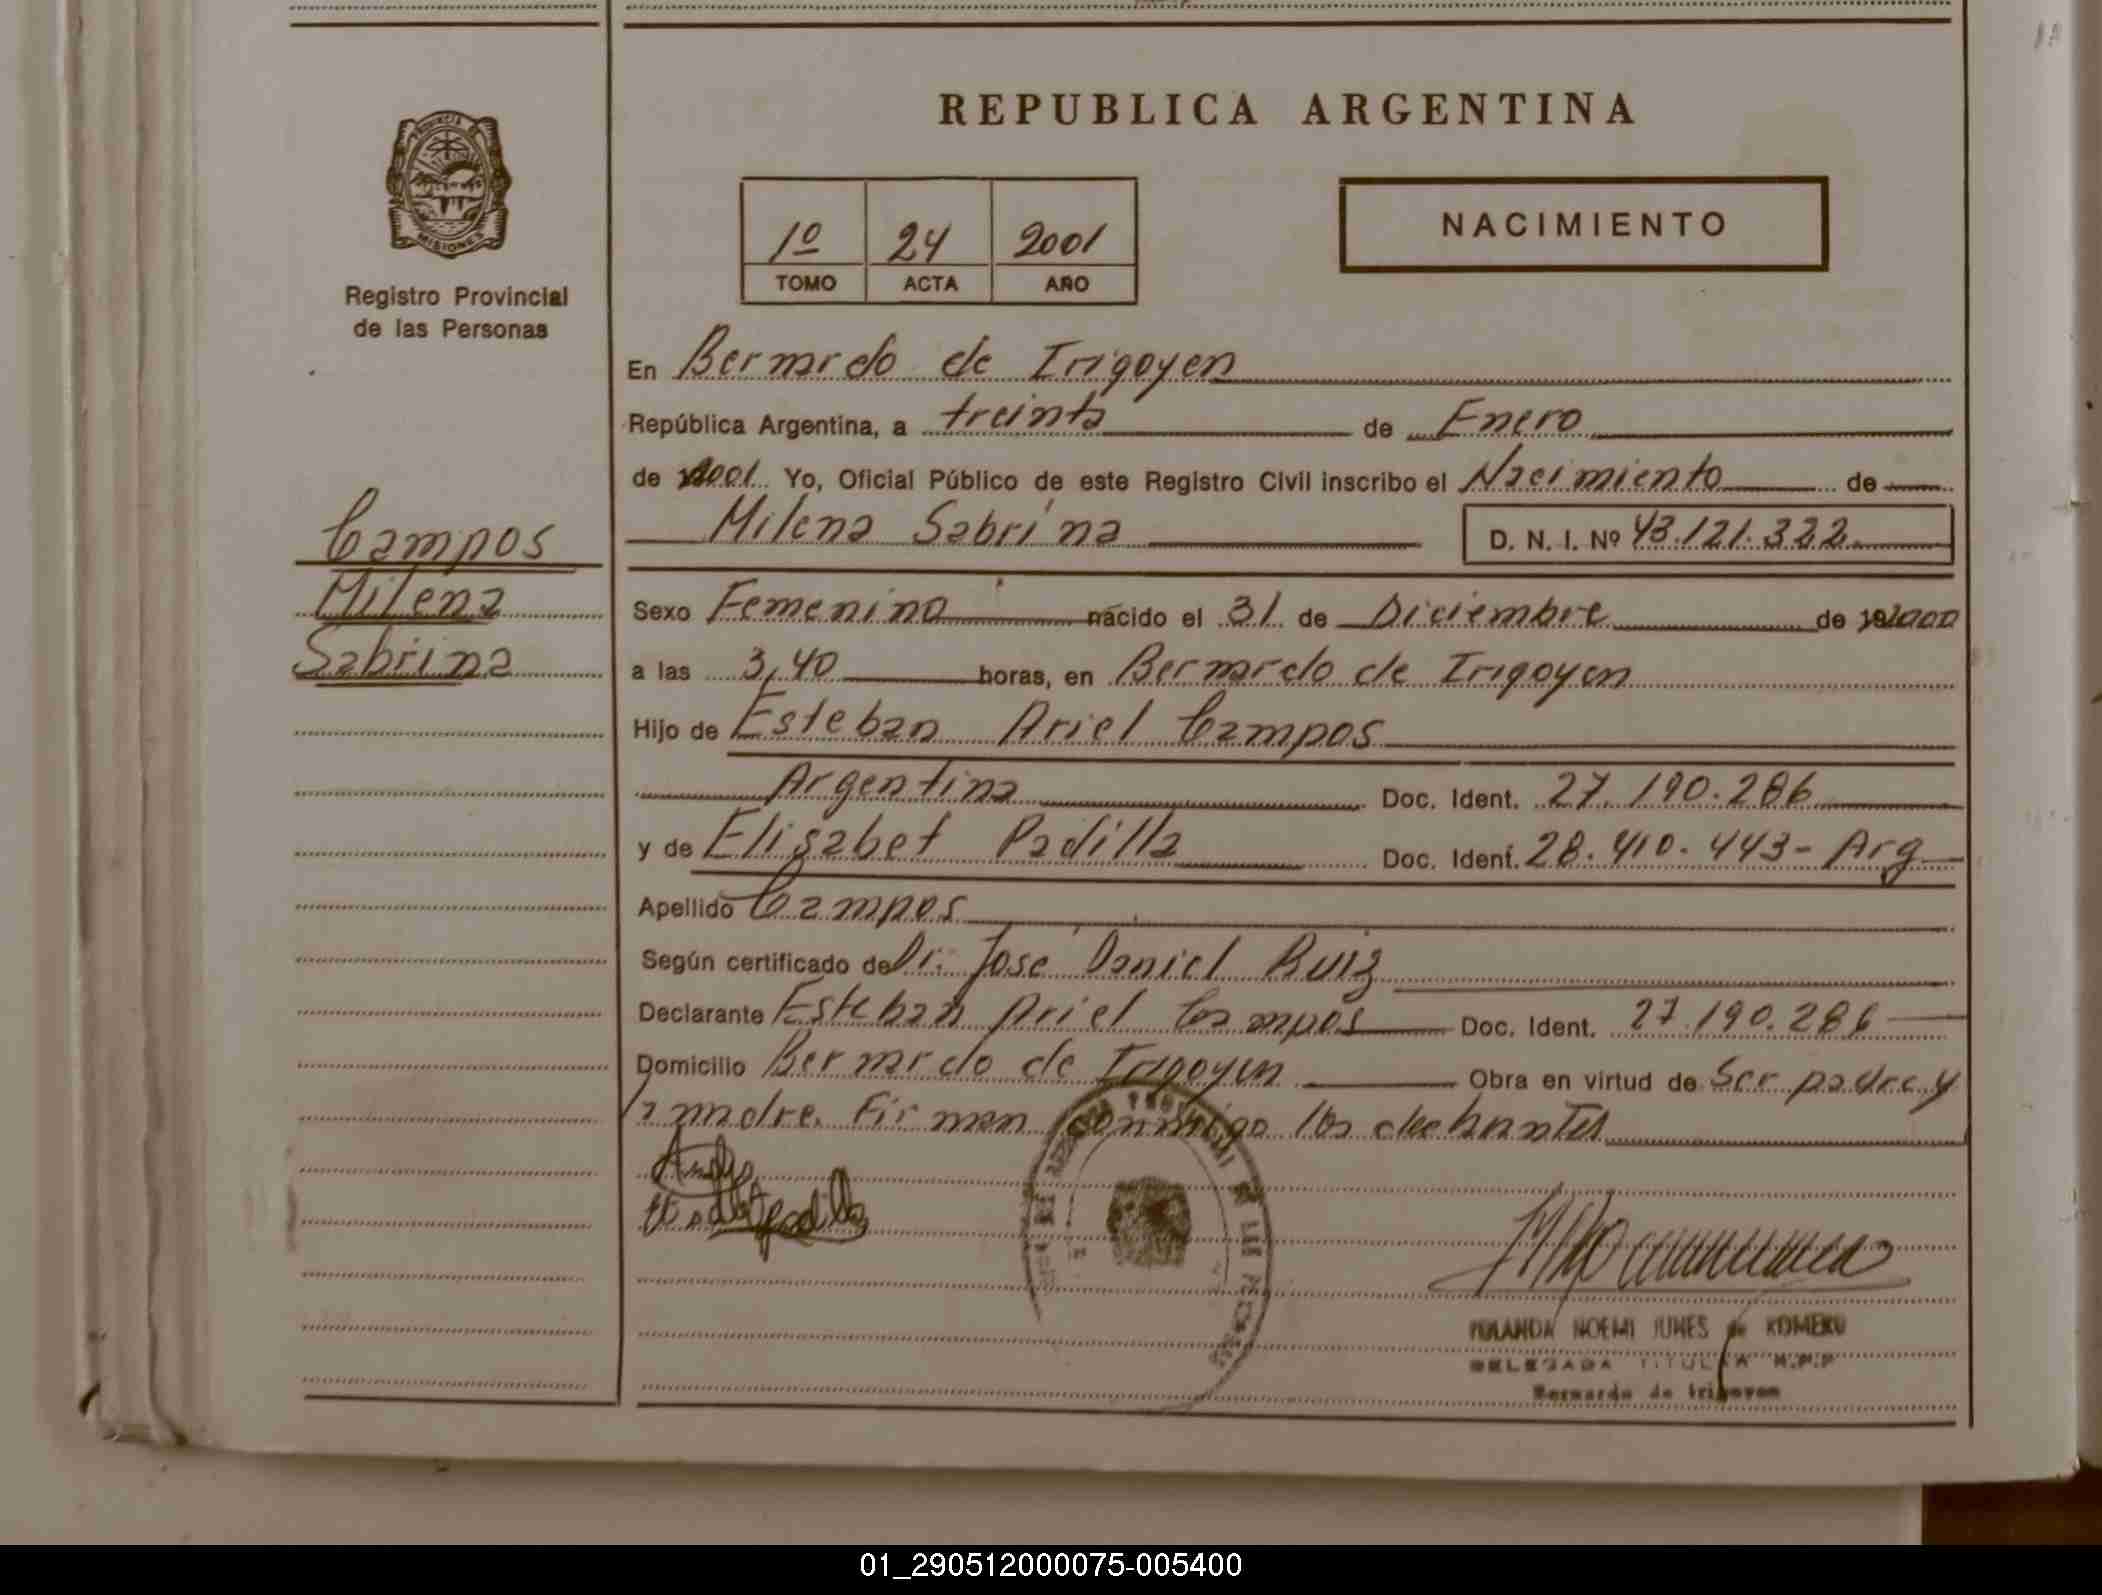 REPUBLICA ARGENTINA
PROVINCIA DE
MISIONES
Registro Provincial
de las Personas
1º 24 2001
TOMO ACTA AÑO
NACIMIENTO
En Bernardo de Irigoyen
República Argentina, a treinta de Enero
de 2001 Yo, Oficial Público de este Registro Civil inscribo el Nacimiento de
Milena Sabrina D. N. I. Nº 43.121.322
Campos
Milena
Sabrina
Sexo Femenino nacido el 31 de Diciembre de 2000
a las 3,40 horas, en Bernardo de Irigoyen
Hijo de Esteban Ariel Campos
Argentina Doc. Ident. 27.190.286
y de Elisabet Padilla Doc. Ident. 28.410.443- Arg
Apellido Campos
Según certificado de Dr. José Daniel Ruiz
Declarante Esteban Ariel Campos Doc. Ident. 27.190.286
Domicilio Bernardo de Irigoyen Obra en virtud de Ser padre y
la madre. Firman conmigo los
YOLANDA NOEMI JUNES de ROMERO
DELEGADA TITULAR R.P.P
Bernardo de Irigoyen
01_290512000075-005400